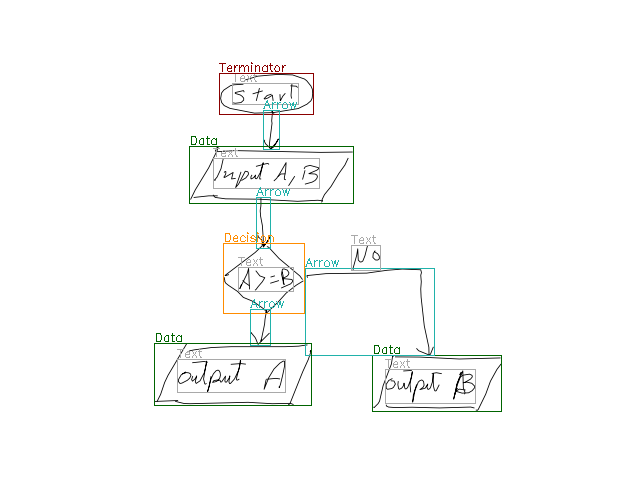 Terminator
Text
Start
Arrow
Data
Text
Input A, B
Arrow
Decision
Text
A>=B
Text
No
Arrow
Arrow
Data
Text
output A
Data
Text
output B